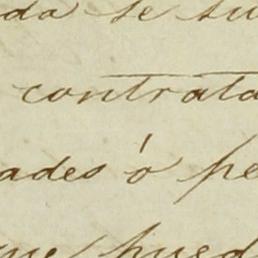 da se su
contrata
ades ó pe
que pued